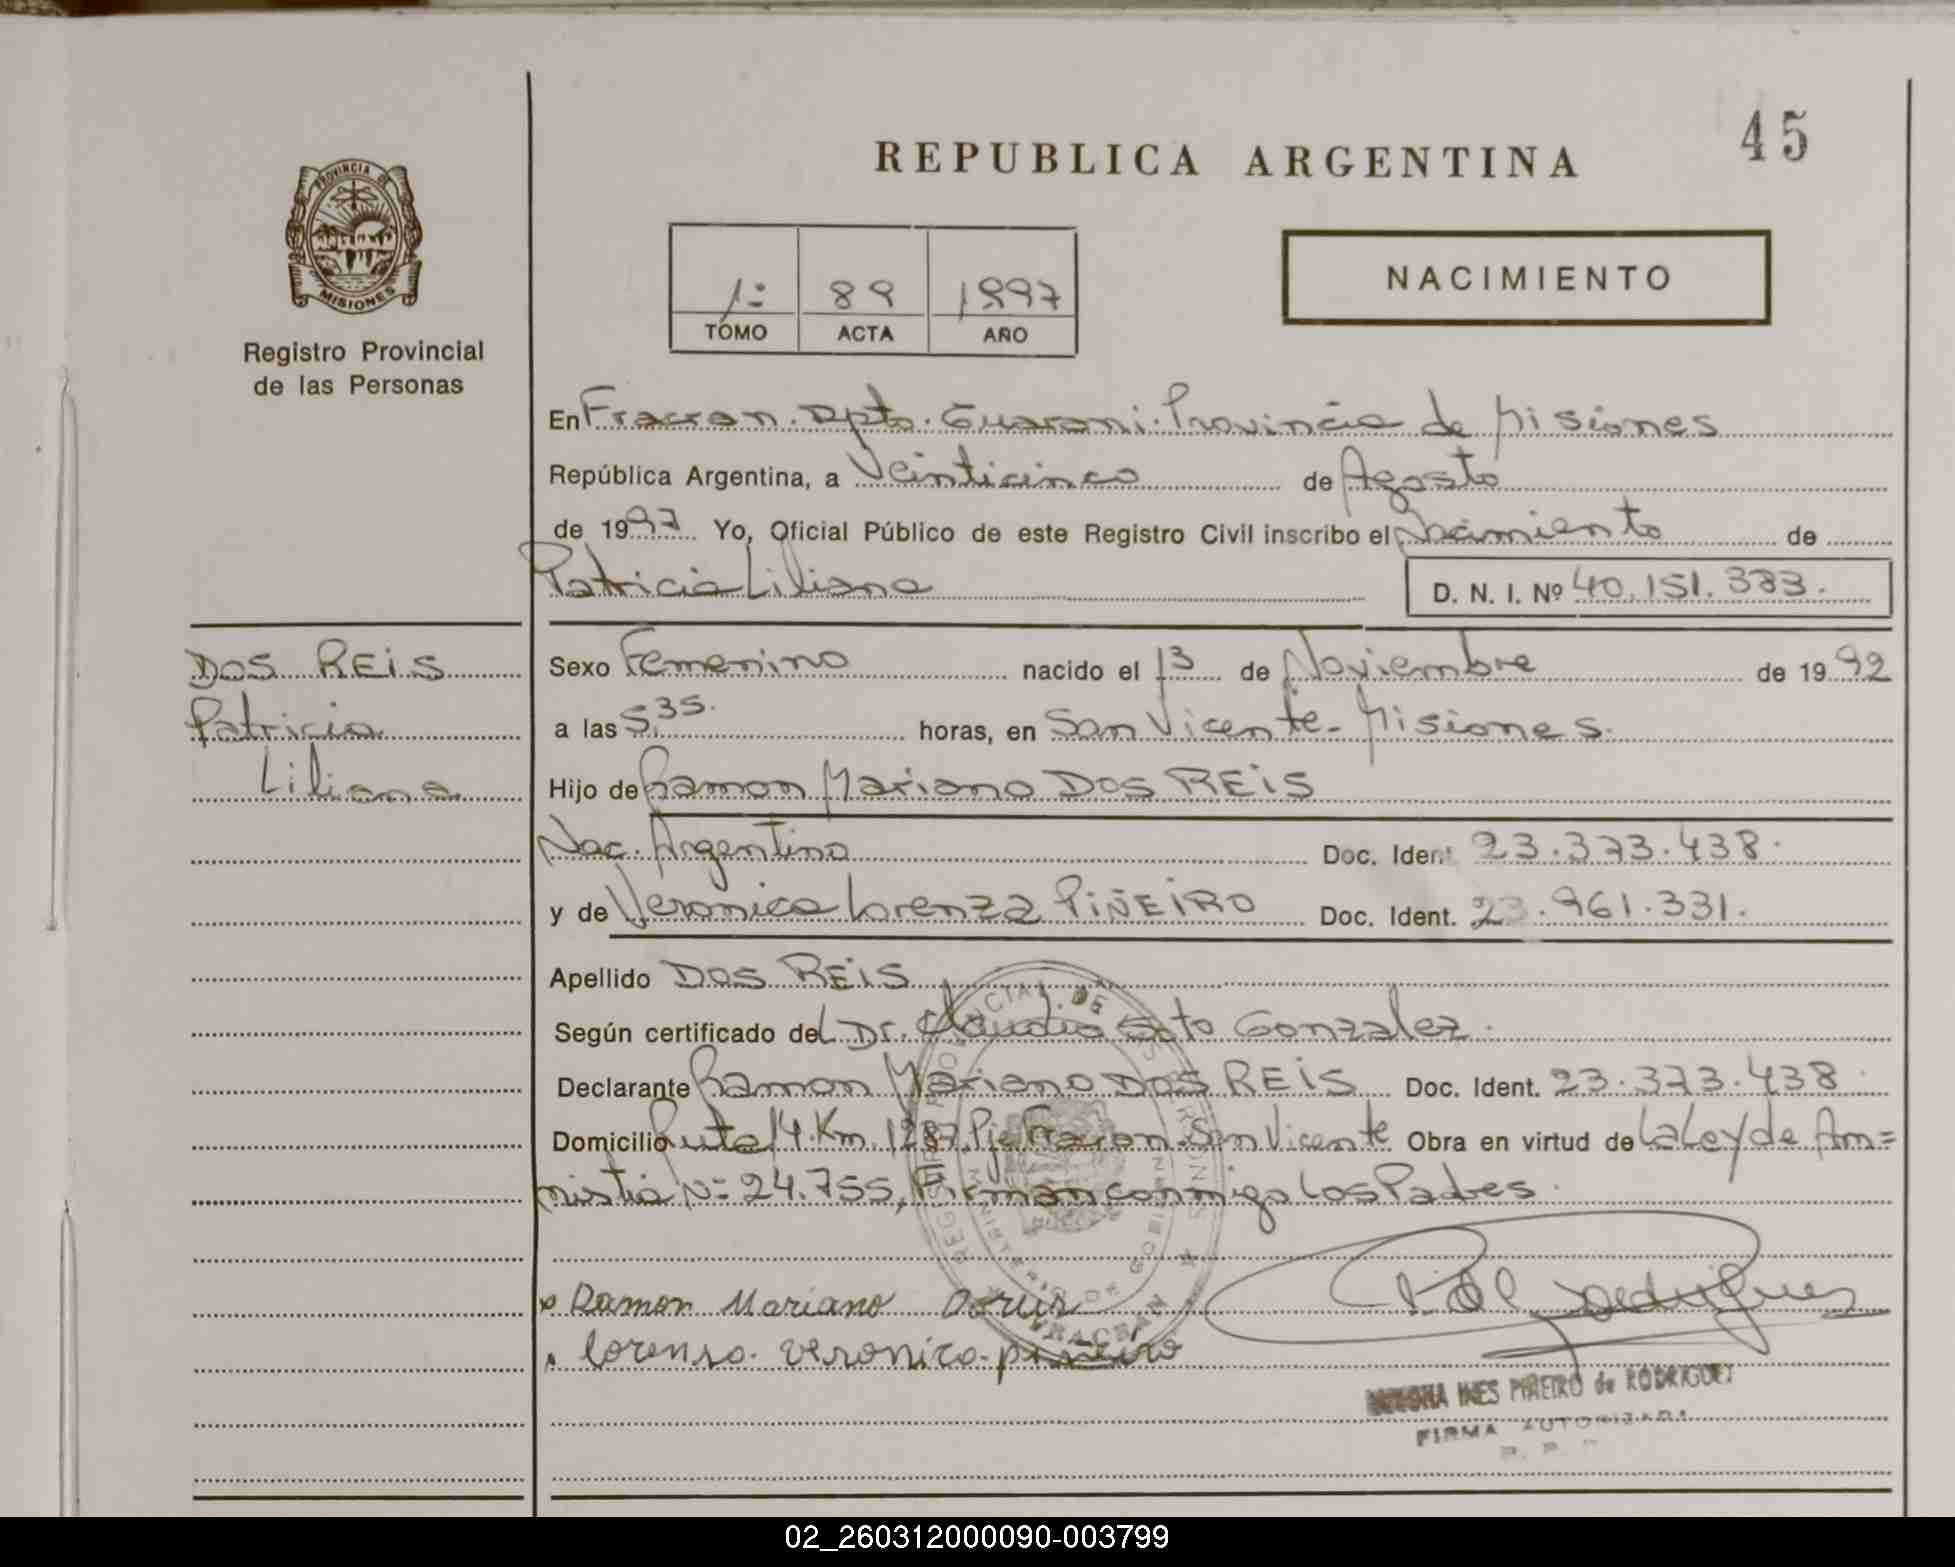 45
REPUBLICA ARGENTINA
PROVINCIA DE
MISIONES
Registro Provincial
de las Personas
1= 89 1997
TOMO ACTA AÑO
NACIMIENTO
En Fracran. Dpto. Guarani. Provincia de Misiones
República Argentina, a Veinticinco de Agosto
de 1997 Yo, Oficial Público de este Registro Civil inscribo el Nacimiento de
Patricia Liliana D. N. I. Nº 40.151.383.
DOS REIS
Patricia
Liliana
Sexo Femenino nacido el 13 de Noviembre de 1992
a las 5,35. horas, en San Vicente - Misiones.
Hijo de Ramon Mariano DOS REIS
Nac. Argentino Doc. Ident 23.373.438.
y de Veronica Lorenza PIÑEIRO Doc. Ident. 23.961.331.
Apellido DOS REIS
Según certificado del Dr. Claudio Soto Gonzalez.
Declarante Ramon Mariano DOS REIS Doc. Ident. 23.373.438.
Domicilio Ruta 14. Km. 1287. Pje Fracran. San Vicente Obra en virtud de la Ley de Am=
nistia Nº 24.755, Firman conmigo los Padres.
Ramon Mariano
lorensa. veronica. piñeiro
INES PIÑEIRO de RODRIGUEZ
FIRMA AUTORIZADA
FRACRAN
02_260312000090-003799